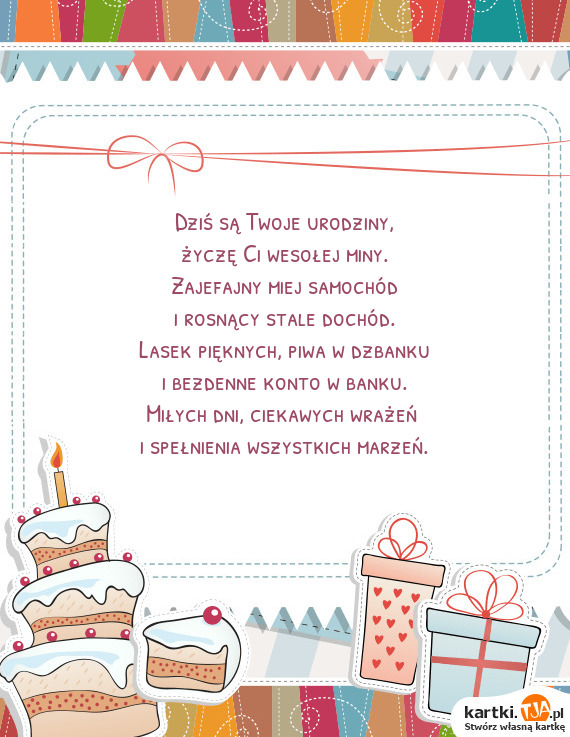 Dziś są Twoje urodziny,
życzę Ci wesołej miny.
Zajefajny miej samochód
i rosnący stale dochód.
Lasek pięknych, piwa w dzbanku
i bezdenne konto w banku.
Miłych dni, ciekawych wrażeń
i spełnienia wszystkich marzeń.
kartki.TJA.pl
Stwórz własną kartkę